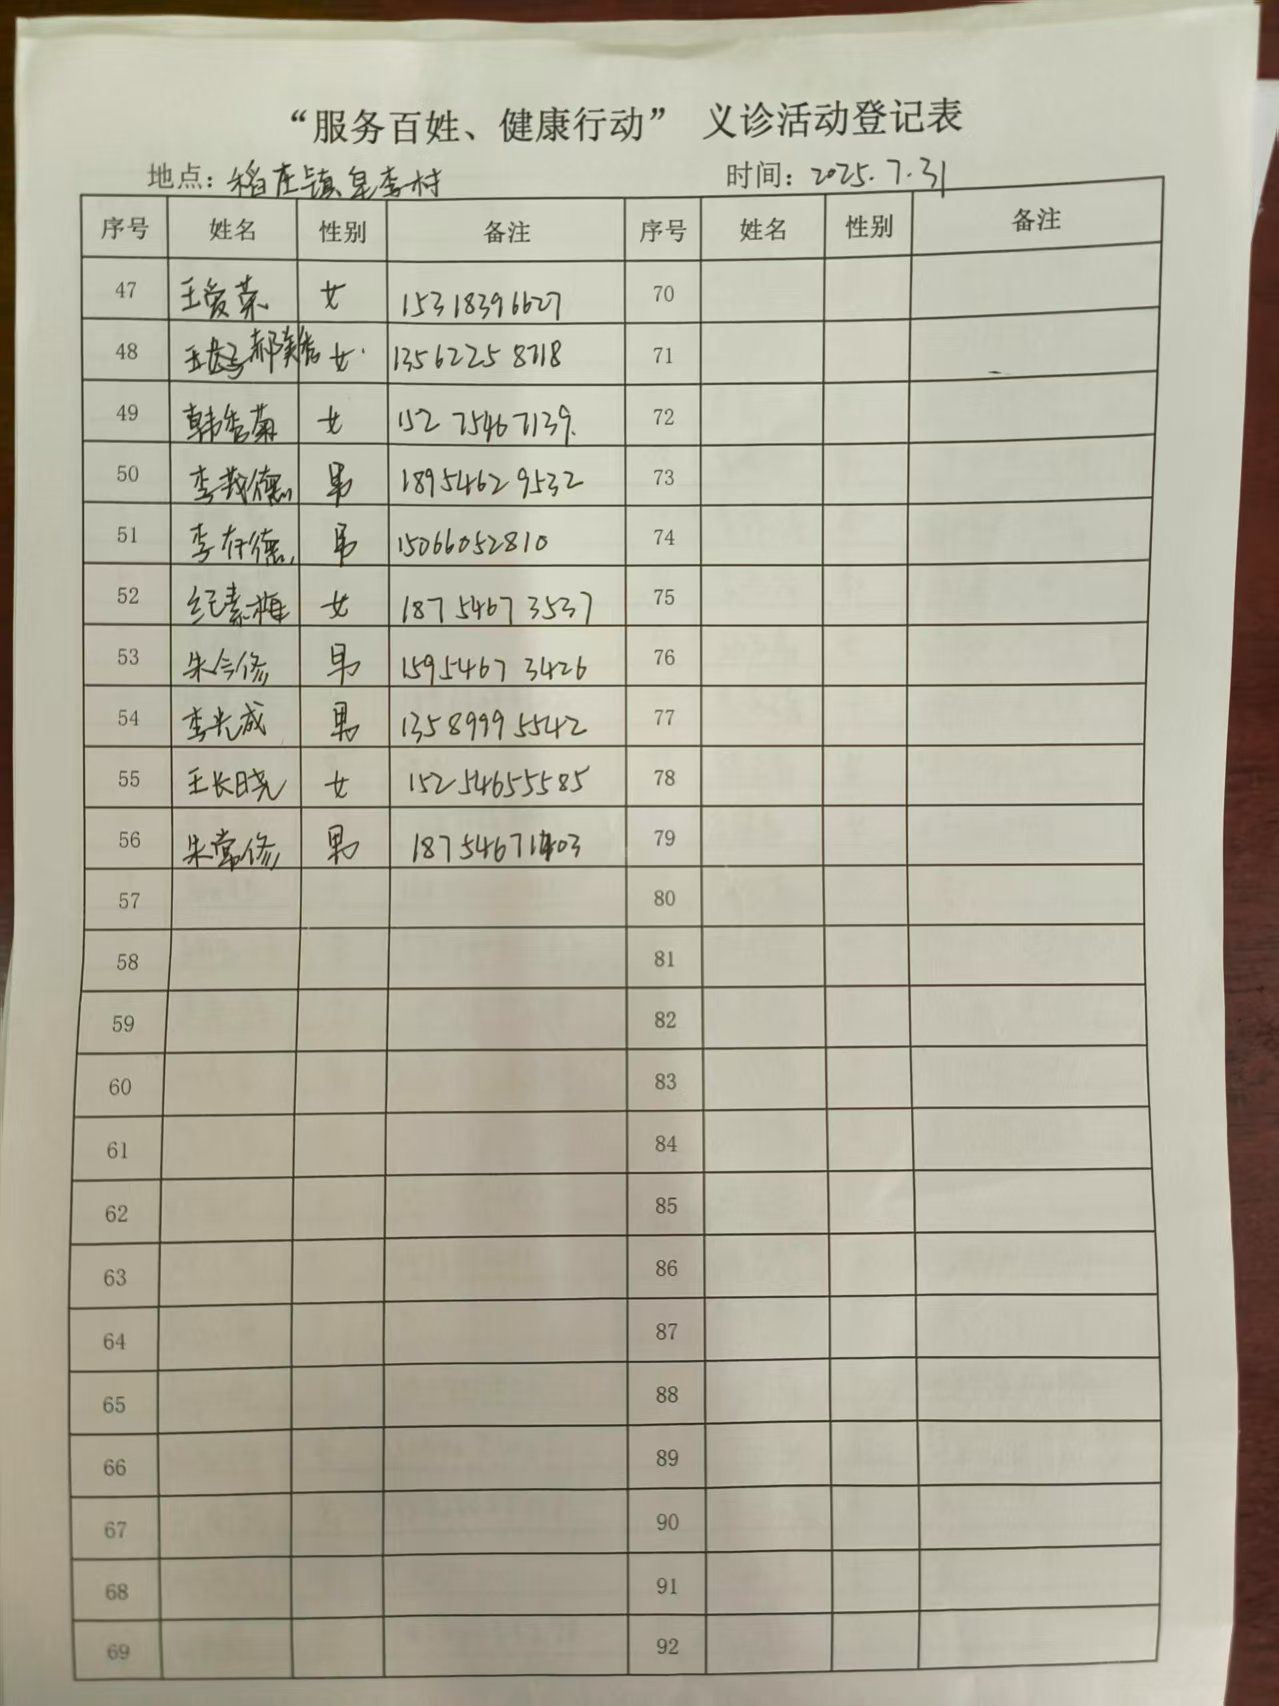 “服务百姓、健康行动” 义诊活动登记表
地点：稻庄镇皇李村 时间：2025.7.31
序号 姓名 性别 备注 序号 姓名 性别 备注
47 王爱荣 女 15318396627 70
48 郝美 女 13562258718 71
49 韩秀菊 女 15275467139 72
50 李德 男 18954629532 73
51 李存德 男 15066052810 74
52 纪素梅 女 18754673537 75
53 朱令修 男 15954673426 76
54 李光成 男 13589995542 77
55 王长晓 女 15254655585 78
56 朱常修 男 79
57 80
58 81
59 82
60 83
61 84
62 85
63 86
64 87
65 88
66 89
67 90
68 91
69 92